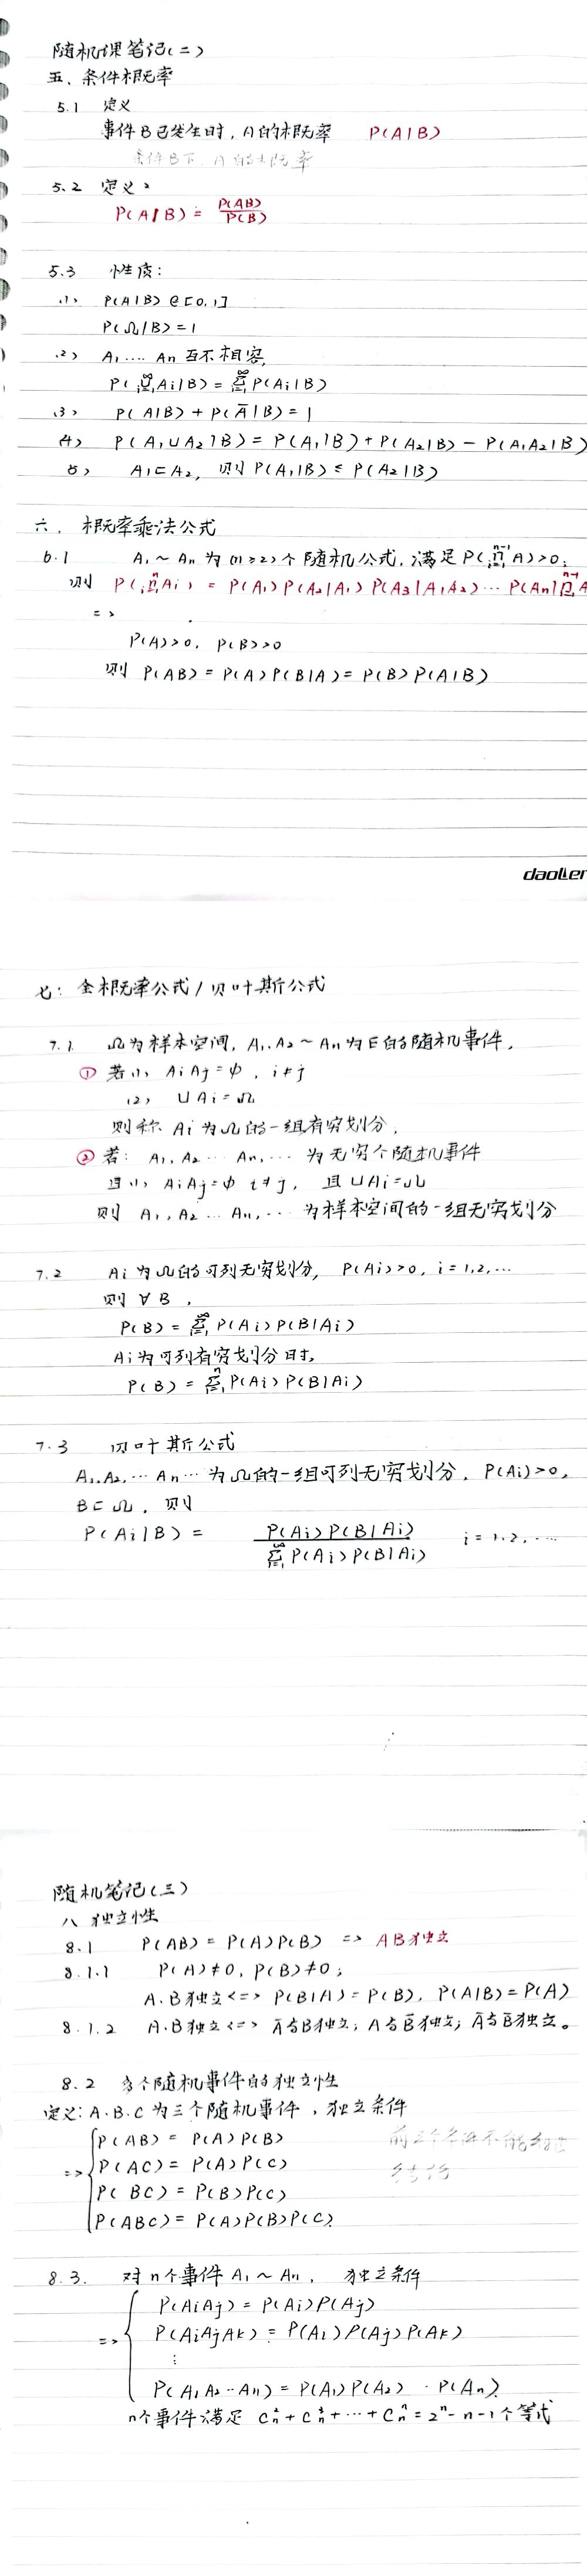 随机课笔记(二)
五、条件概率
5.1 定义
事件B已发生时, A的概率 P(A|B)
条件B下, A的概率
5.2 定义2
P(A|B) = P(AB)/P(B)
5.3 性质:
(1) P(A|B) ∈ [0,1]
P(Ω|B) = 1
(2) A₁.... An 互不相容,
P(∞∪i=1 Ai|B) = ∞Σi=1 P(Ai|B)
(3) P(A|B) + P(Ā|B) = 1
(4) P(A₁∪A₂|B) = P(A₁|B) + P(A₂|B) - P(A₁A₂|B)
(5) A₁⊂A₂, 则 P(A₁|B) ≤ P(A₂|B)
六. 概率乘法公式
6.1 A₁~An 为 (n≥2)个随机公式, 满足 P(n-1∩i=1 A)>0;
则 P(n∩i=1 Ai) = P(A₁)P(A₂|A₁)P(A₃|A₁A₂)...P(An|n-1∩i=1 A
=>
P(A)>0, P(B)>0
则 P(AB) = P(A)P(B|A) = P(B)P(A|B)
daolier
七: 全概率公式/贝叶斯公式
7.1. Ω为样本空间, A₁.A₂~An为E的随机事件,
① 若(1) AiAj=φ, i≠j
(2) ∪Ai=Ω
则称 Ai为Ω的一组有穷划分,
② 若: A₁, A₂... An,... 为无穷个随机事件
且(1) AiAj=φ i≠j, 且∪Ai=Ω
则 A₁, A₂... An,... 为样本空间的一组无穷划分
7.2 Ai为Ω的可列无穷划分, P(Ai)>0, i=1.2,...
则 ∀B,
P(B) = ∞Σi=1 P(Ai)P(B|Ai)
Ai为可列有穷划分时,
P(B) = nΣi=1 P(Ai)P(B|Ai)
7.3 贝叶斯公式
A₁.A₂,... An... 为Ω的一组可列无穷划分, P(Ai)>0,
B⊂Ω, 则
P(Ai|B) = P(Ai)P(B|Ai) / ∞Σi=1 P(Ai)P(B|Ai) i=1.2,....
随机笔记(三)
八 独立性
8.1 P(AB) = P(A)P(B) => AB独立
8.1.1 P(A)≠0, P(B)≠0;
A.B独立<=> P(B|A) = P(B), P(A|B) = P(A)
8.1.2 A.B独立<=> Ā与B独立; A与B̄独立; Ā与B̄独立。
8.2 多个随机事件的独立性
定义: A.B.C为三个随机事件, 独立条件
P(AB) = P(A)P(B) 前三个条件不能
=> P(AC) = P(A)P(C)
P(BC) = P(B)P(C)
P(ABC) = P(A)P(B)P(C).
8.3. 对n个事件 A₁~An, 独立条件
P(AiAj) = P(Ai)P(Aj)
=> P(AiAjAk) = P(Ai)P(Aj)P(Ak)
⋮
P(A₁A₂...An) = P(A₁)P(A₂)...P(An).
n个事件满足 C²n + C³n + ... + Cⁿn = 2ⁿ-n-1个等式